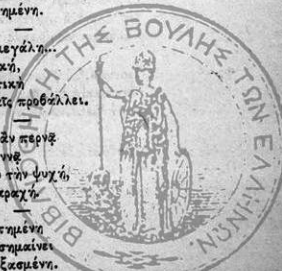 ημένη.
εγάλη...
κή,
τική
αῖς προβάλλει.
ἂν περνᾷ
ννᾷ
τὴν ψυχή,
αραχή.
τημένη
σημαίνει
ξασμένη.
ΒΙΒΛΙΟΘΗΚΗ ΤΗΣ ΒΟΥΛΗΣ ΤΩΝ ΕΛΛΗΝΩΝ